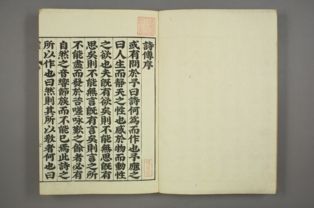 詩傳序
或有問於予曰詩何爲而作也予應之
曰人生而靜天之性也感於物而動性
之欲也夫既有欲矣則不能無思既有
思矣則不能無言既有言矣則言之所
不能盡而發於咨嗟咏歎之餘者必有
自然之音響節族而不能已焉此詩之
所以作也曰然則其所以敎者何也曰